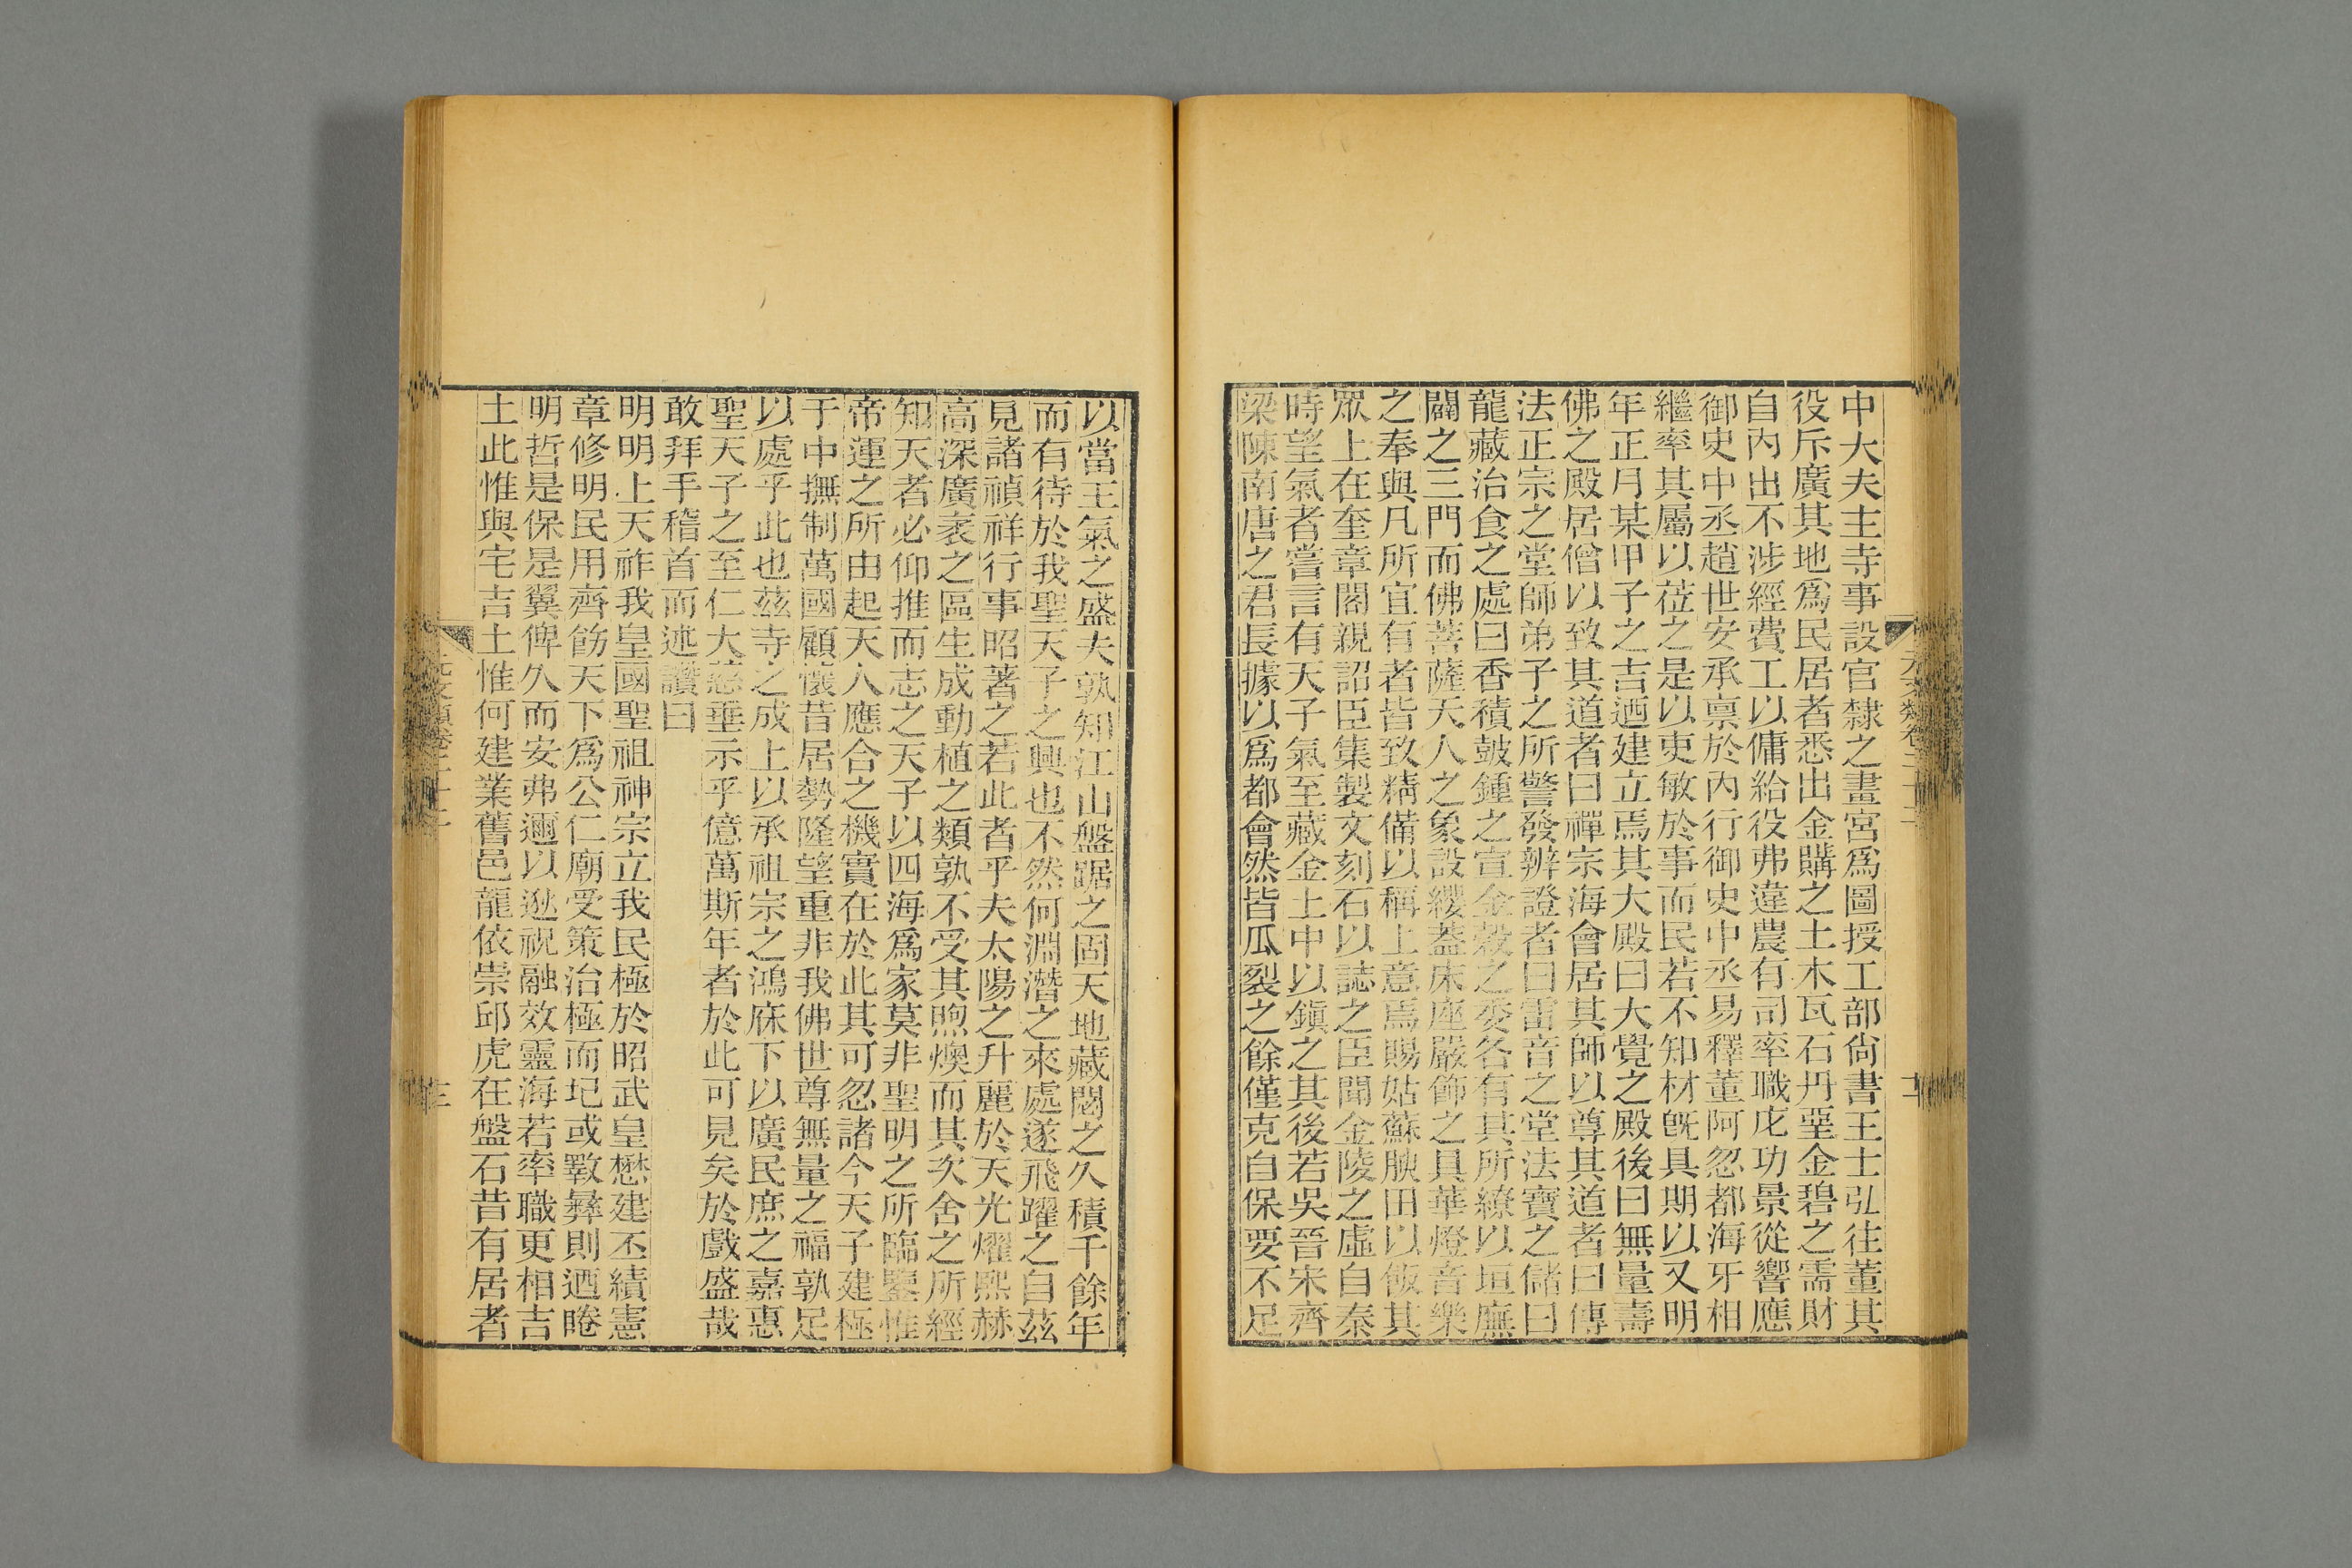 中大夫主寺事設官隸之畫宮爲圖授工部尙書王士弘往董其
役斥廣其地爲民居者悉出金購之土木瓦石丹堊金碧之需財
自內出不涉經費工以傭給役弗違農有司率職庀功景從響應
御史中丞趙世安承稟於內行御史中丞易釋董阿忽都海牙相
繼率其屬以莅之是以吏敏於事而民若不知材旣具期以又明
年正月某甲子之吉迺建立焉其大殿曰大覺之殿後曰無量壽
佛之殿居僧以致其道者曰禪宗海會居其師以尊其道者曰傳
法正宗之堂師弟子之所警發辨證者曰雷音之堂法寶之儲曰
龍藏治食之處曰香積鼓鍾之宣金穀之委各有其所繚以垣廡
闢之三門而佛菩薩天人之象設纓葢床座嚴飾之具華燈音樂
之奉與凡所宜有者皆致精備以稱上意焉賜姑蘇腴田以飯其
眾上在奎章閣親詔臣集製文刻石以誌之臣聞金陵之虛自秦
時望氣者嘗言有天子氣至藏金土中以鎭之其後若吳晉宋齊
梁陳南唐之君長據以爲都會然皆瓜裂之餘僅克自保要不足
以當王氣之盛夫孰知江山盤踞之固天地藏閟之久積千餘年
而有待於我聖天子之興也不然何淵潛之來處遂飛躍之自茲
見諸禎祥行事昭著之若此者乎夫太陽之升麗於天光燿熙赫
高深廣袤之區生成動植之類孰不受其煦燠而其次舍之所經
知天者必仰推而志之天子以四海爲家莫非聖明之所臨鑒惟
帝運之所由起天人應合之機實在於此其可忽諸今天子建極
于中撫制萬國顧懷昔居勢隆望重非我佛世尊無量之福孰足
以處乎此也茲寺之成上以承祖宗之鴻庥下以廣民庶之嘉惠
聖天子之至仁大慈垂示乎億萬斯年者於此可見矣於戲盛哉
敢拜手稽首而述讚曰
明明上天祚我皇國聖祖神宗立我民極於昭武皇懋建丕績憲
章修明民用齊飭天下爲公仁廟受策治極而圮或斁彝則迺睠
明哲是保是翼俾久而安弗邇以逖祝融效靈海若率職更相吉
土此惟與宅吉土惟何建業舊邑龍依崇邱虎在盤石昔有居者